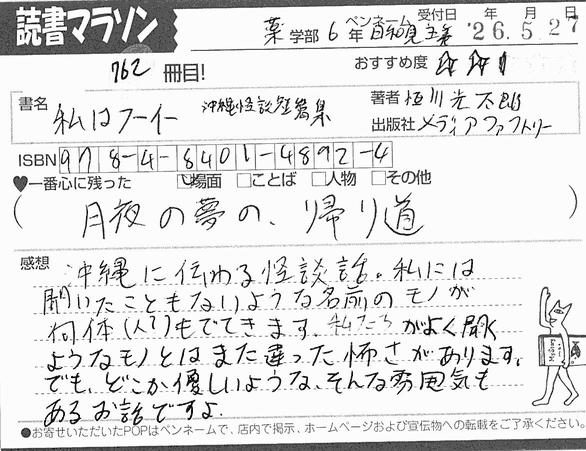 読書マラソン
薬学部 6年 ペンネーム 受付日 '26.5.27 年 月 日
762 冊目! おすすめ度 ☆☆
書名 私はフーイー 沖縄怪談短篇集
著者 恒川光太郎
出版社 メディアファクトリー
ISBN 978-4-8401-4892-4
♥一番心に残った ☑場面 □ことば □人物 □その他
( 月夜の夢の、帰り道 )
感想 沖縄に伝わる怪談話。私には
聞いたこともないような名前のモノが
何体(人?)もでてきます。私たちがよく聞く
ようなモノとはまた違った怖さがあります。
でも、どこか優しいような、そんな雰囲気も
あるお話ですよ。
●お寄せいただいたPOPはペンネームで、店内で掲示、ホームページおよび宣伝物への転載をご了承ください。